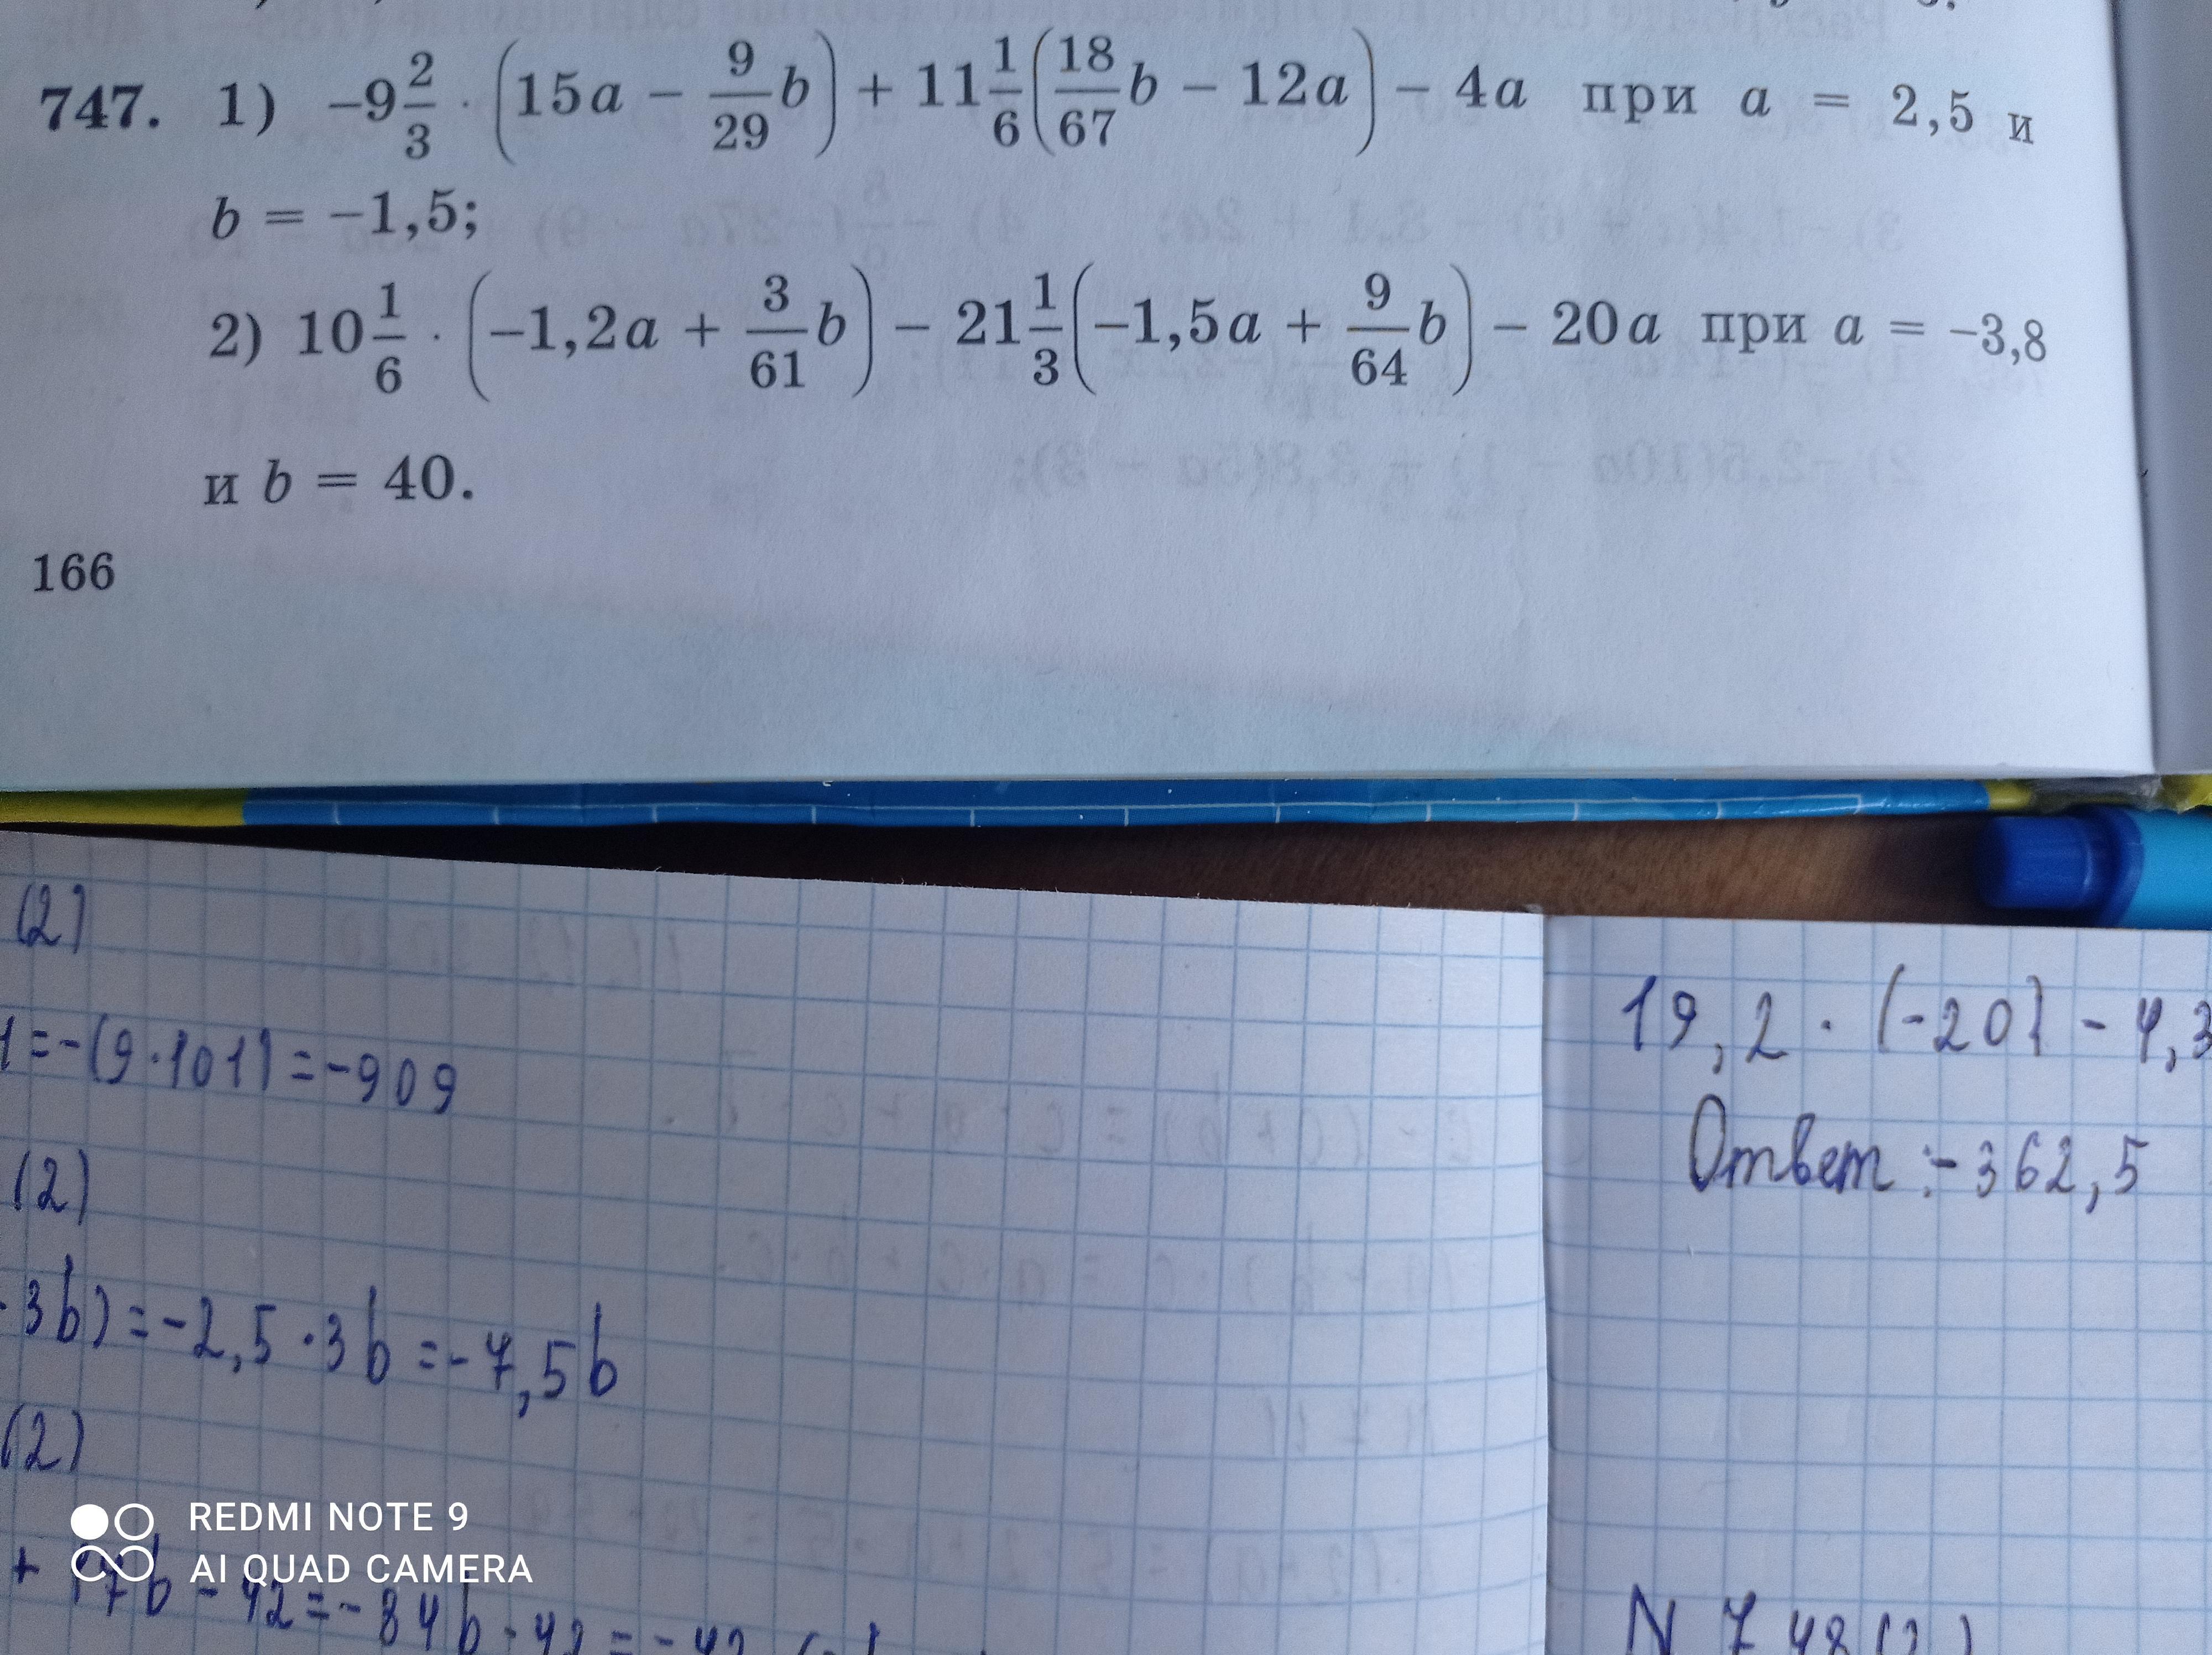 747. 1) −9 2/3 · (15a − 9/29 b) + 11 1/6 (18/67 b − 12a) − 4a при a = 2,5 и
b = −1,5;
2) 10 1/6 · (−1,2a + 3/61 b) − 21 1/3 (−1,5a + 9/64 b) − 20a при a = −3,8
и b = 40.
166
(2)
1=-(9·101)=-909
(2)
3b)=-2,5·3b=-7,5b
(2)
+ 17b - 42=-84b-42=-42
19,2 · (-20) - 4,3
Ответ: -362,5
N 748(2)
REDMI NOTE 9
AI QUAD CAMERA